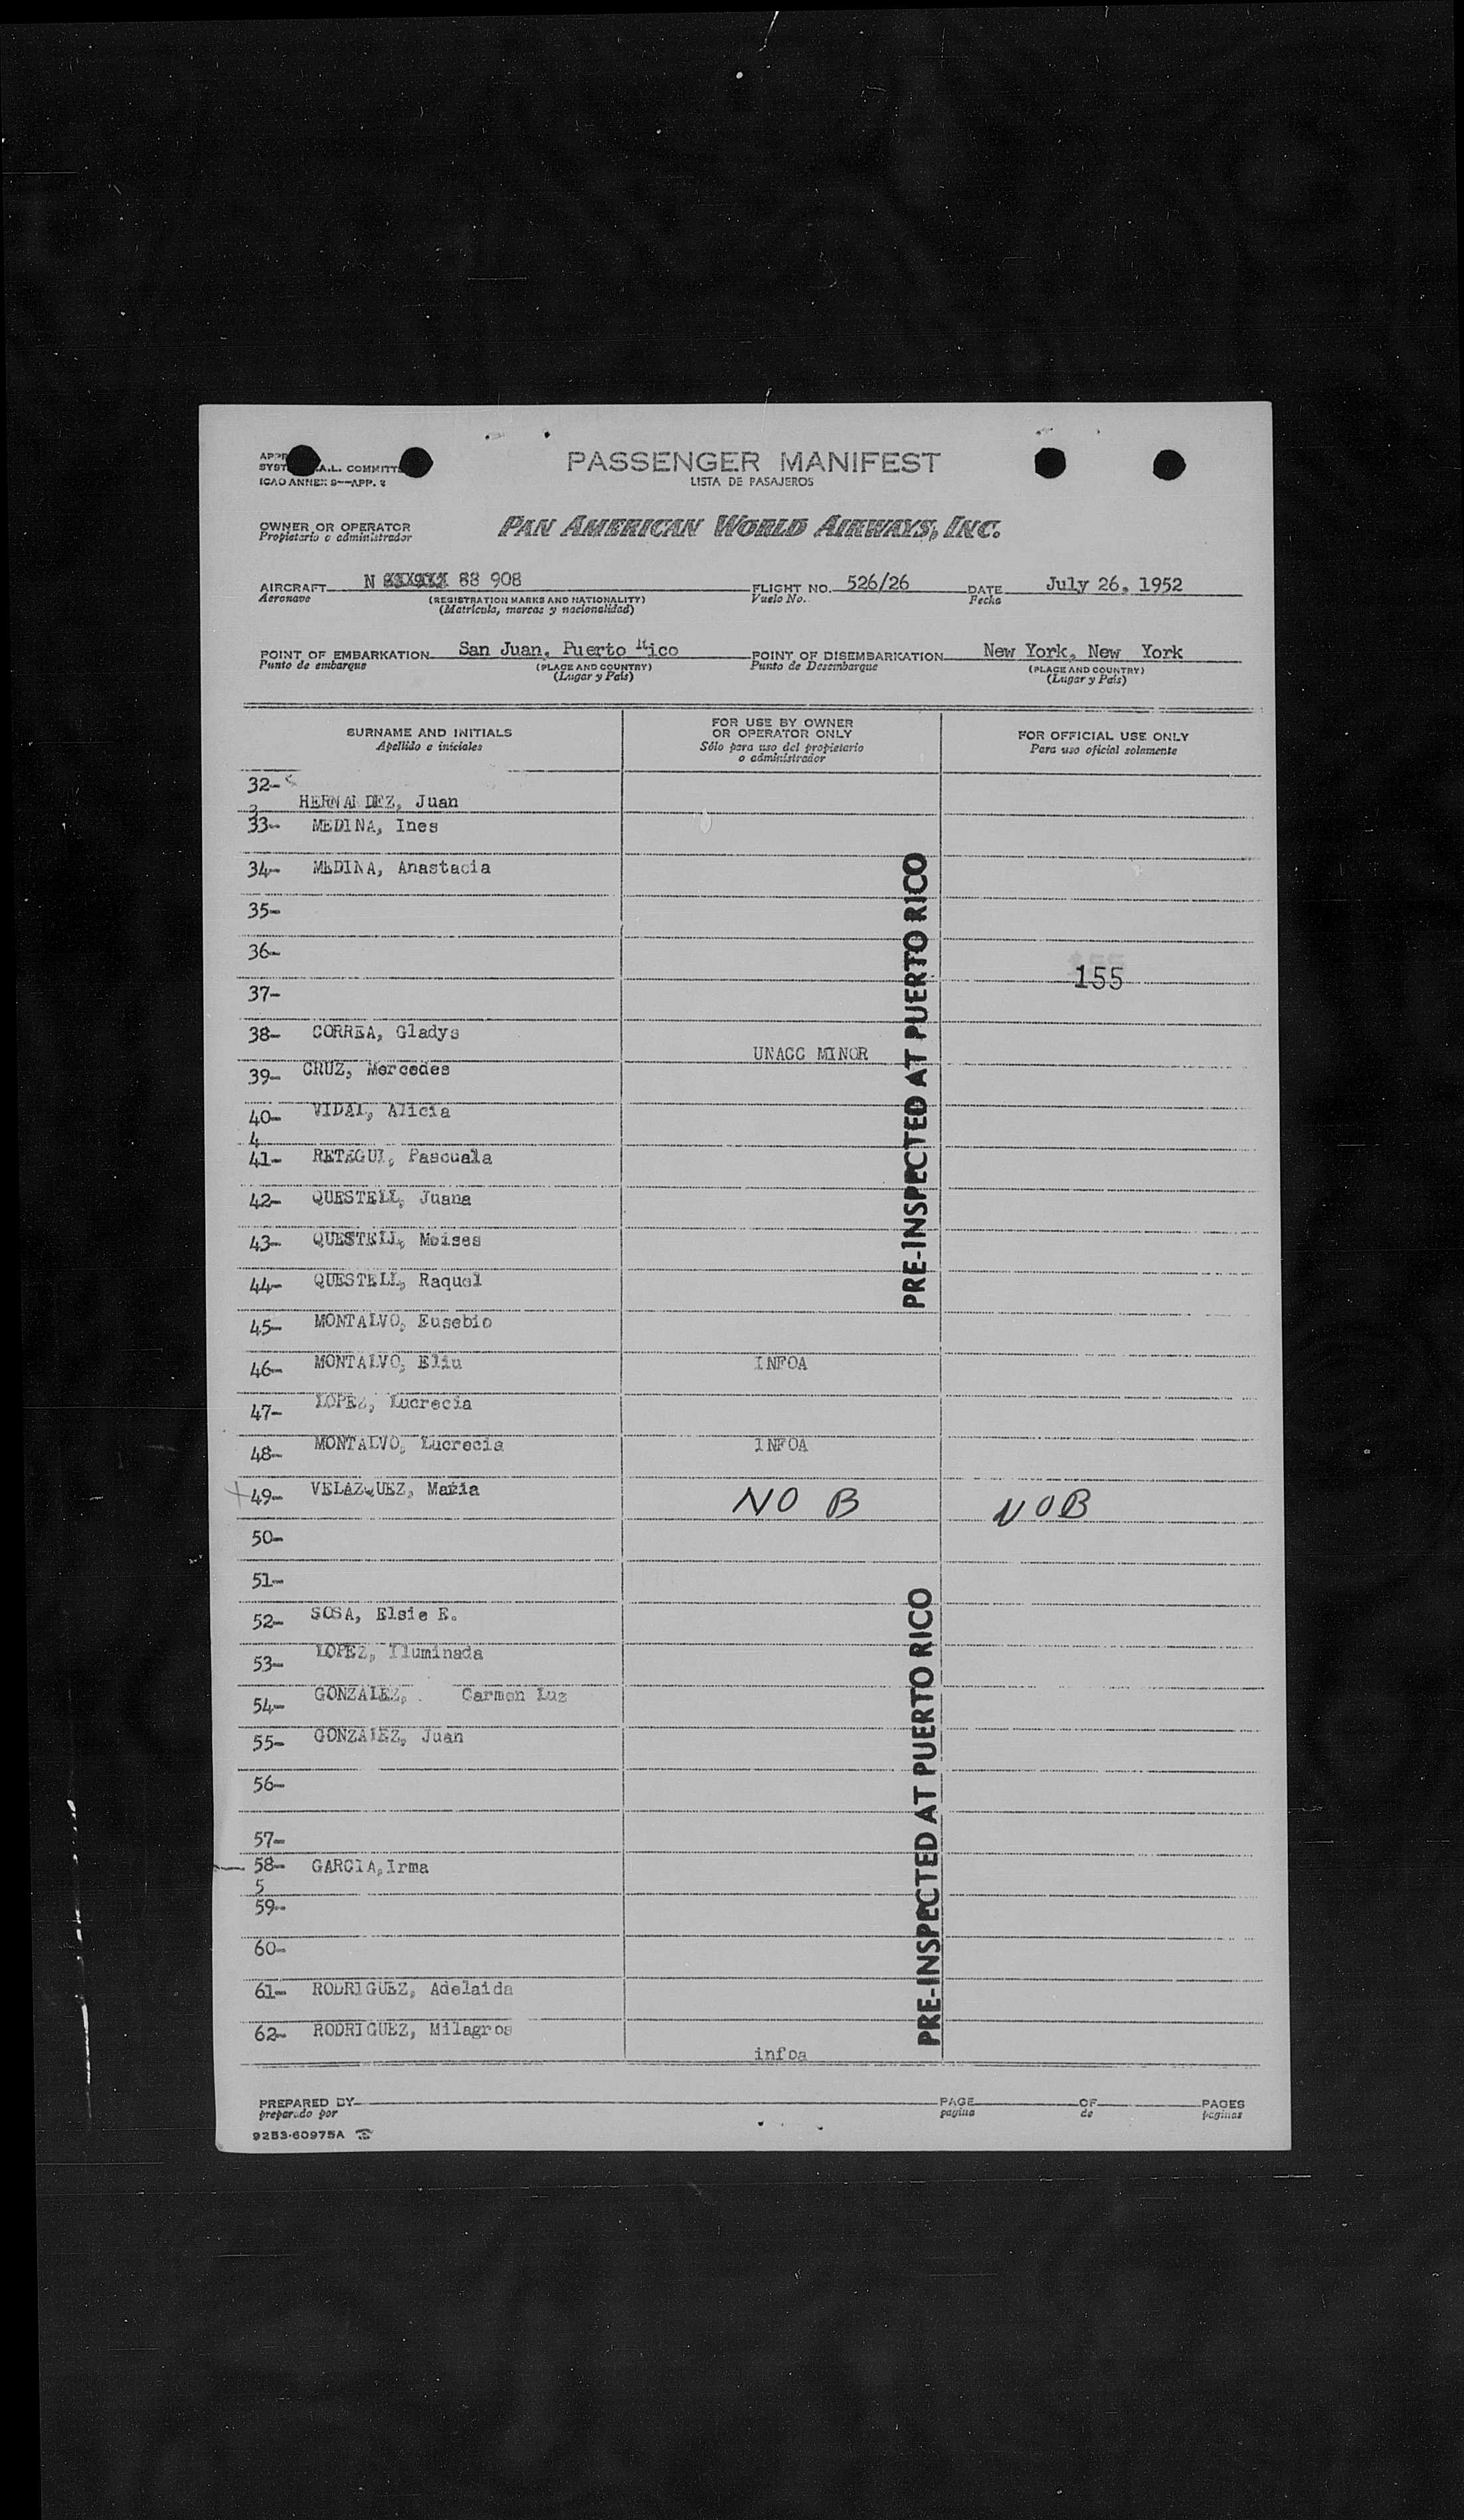 PASSENGER MANIFEST
LISTA DE PASAJEROS
A.L. COMMITT
ICAO ANNEX 9—APP. 2
OWNER OR OPERATOR
Propietario o administrador
PAN AMERICAN WORLD AIRWAYS, INC.
AIRCRAFT N 88 908 FLIGHT NO. 526/26 DATE July 26, 1952
Aeronave (REGISTRATION MARKS AND NATIONALITY) Vuelo No. Fecha
(Matrícula, marcas y nacionalidad)
POINT OF EMBARKATION San Juan, Puerto Rico POINT OF DISEMBARKATION New York, New York
Punto de embarque (PLACE AND COUNTRY) Punto de Desembarque (PLACE AND COUNTRY)
(Lugar y País) (Lugar y País)
SURNAME AND INITIALS
Apellido e iniciales
FOR USE BY OWNER
OR OPERATOR ONLY
Sólo para uso del propietario
o administrador
FOR OFFICIAL USE ONLY
Para uso oficial solamente
32-
HERNANDEZ, Juan
3
33- MEDINA, Ines
34- MEDINA, Anastacia
35-
36-
155
37-
38- CORREA, Gladys
UNACC MINOR
39- CRUZ, Mercedes
40- VIDAL, Alicia
4
41- RETEGUI, Pascuala
42- QUESTELL, Juana
43- QUESTELL, Moises
44- QUESTELL, Raquel
45- MONTALVO, Eusebio
46- MONTALVO, Eliu INFOA
47- LOPEZ, Lucrecia
48- MONTALVO, Lucrecia INFOA
49- VELAZQUEZ, Maria NO B NOB
50-
51-
52- SOSA, Elsie E.
53- LOPEZ, Iluminada
54- GONZALEZ, Carmen Luz
55- GONZALEZ, Juan
56-
57-
58- GARCIA, Irma
5
59-
60-
61- RODRIGUEZ, Adelaida
62- RODRIGUEZ, Milagros
infoa
PRE-INSPECTED AT PUERTO RICO
PRE-INSPECTED AT PUERTO RICO
PREPARED BY PAGE OF PAGES
preparado por pagina de paginas
9253-60975A